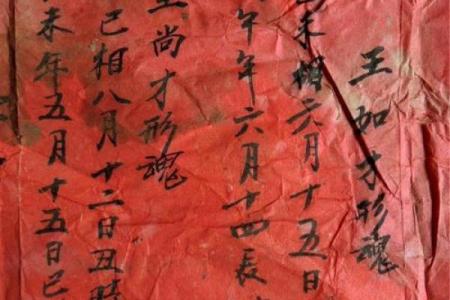 王加才形魂
未相六月十五日
午年六月十四長
尚才形魂
己相八月十二日丑時
未年五月十五日巳